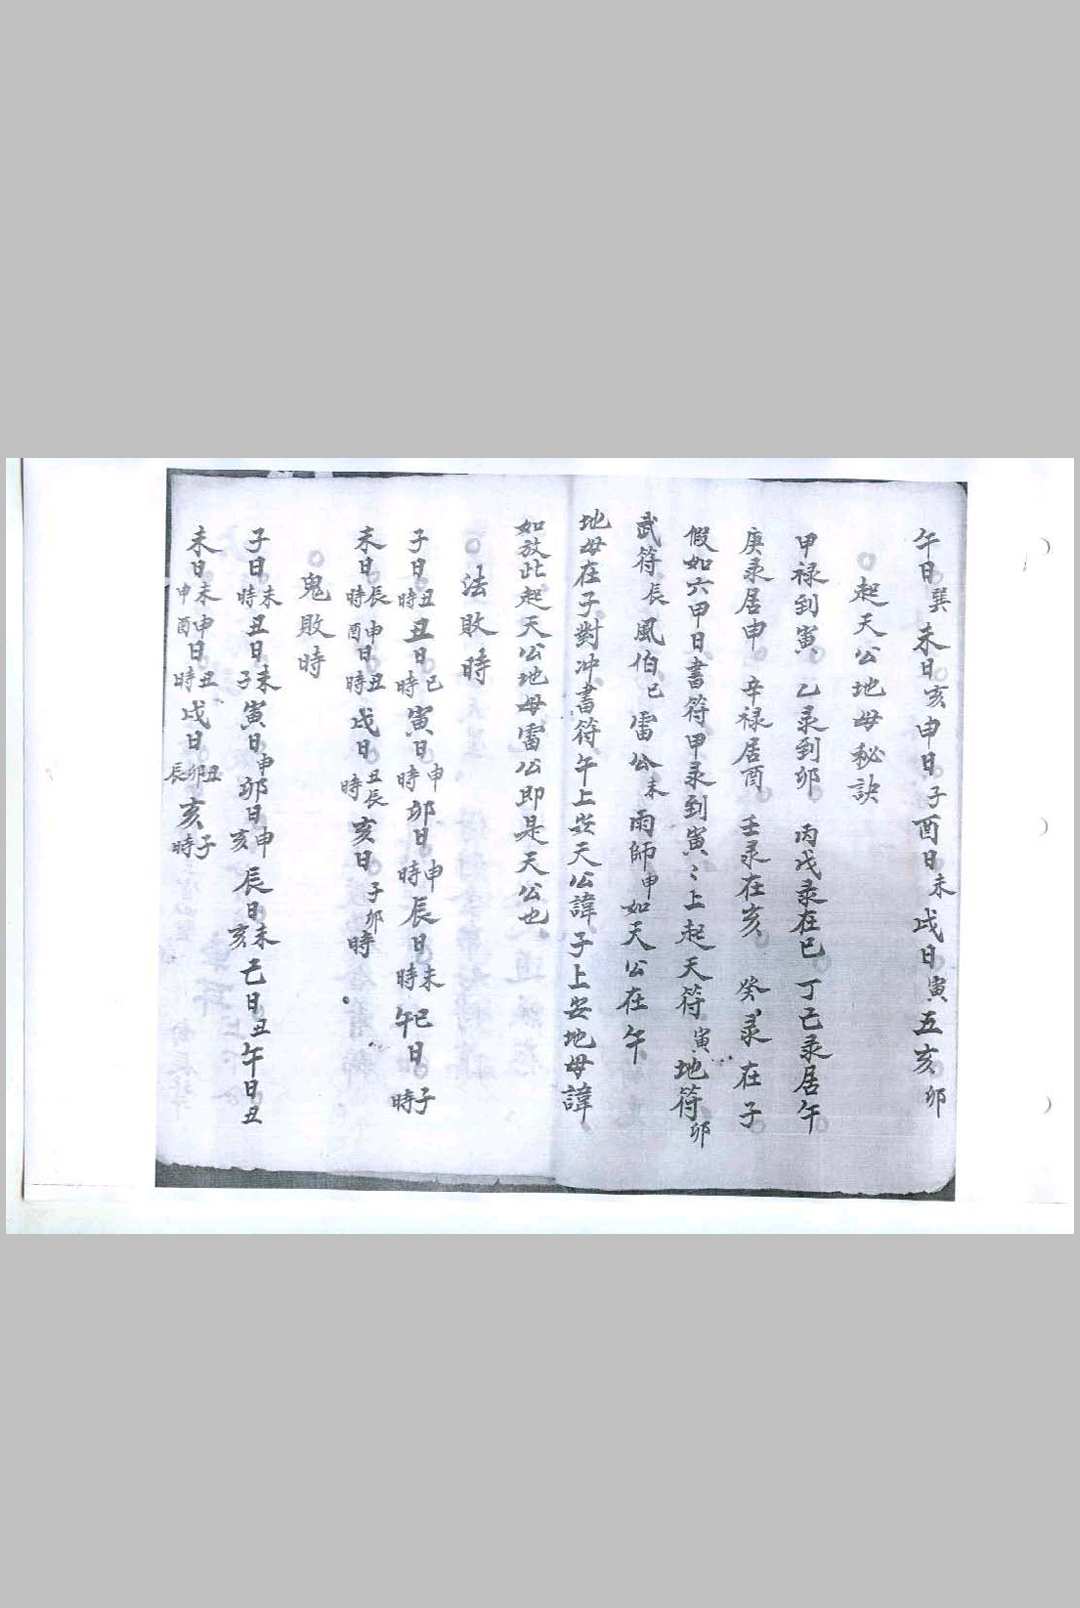 午日巽未日亥申日子酉日未戌日寅五亥卯
○起天公地母秘訣
甲禄到寅、乙彔到卯 丙戊彔在巳 丁己彔居午
庚彔居申 辛禄居酉 壬彔在亥 癸彔在子
假如六甲日書符甲彔到寅〻上起天符寅地符卯
武符辰風伯巳雷公未雨師申如天公在午
地母在子對冲書符午上安天公諱子上安地母諱
如放此起天公地母雷公即是天公也
○法敗時
子日丑時丑日巳時寅日申時卯日申時辰日未時午巳日子時
未日辰時申酉日丑時戌日丑辰時亥日子卯時
○鬼敗時
子日未時丑日未子寅日申卯日申亥辰日未亥巳日丑午日丑
未日未申申酉日丑時戌日丑卯辰亥子時